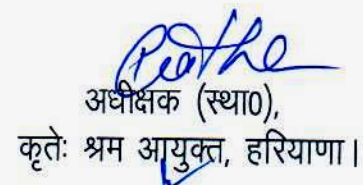 अधीक्षक (स्था0),
कृतेः श्रम आयुक्त, हरियाणा।